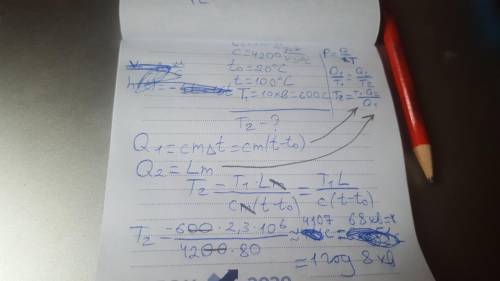 c=4200 Дж/кг°C
t₀=20°C
t=100°C
T₁=10хв=600с
T₂-?
P=Q/T
Q₁/T₁=Q₂/T₂
T₂=T₁Q₂/Q₁
Q₁=cmΔt=cm(t-t₀)
Q₂=Lm
T₂=T₁·Lm/cm(t-t₀)=T₁L/c(t-t₀)
T₂=600·2,3·10⁶/4200·80≈4107c=68хв=
=1год 8хв